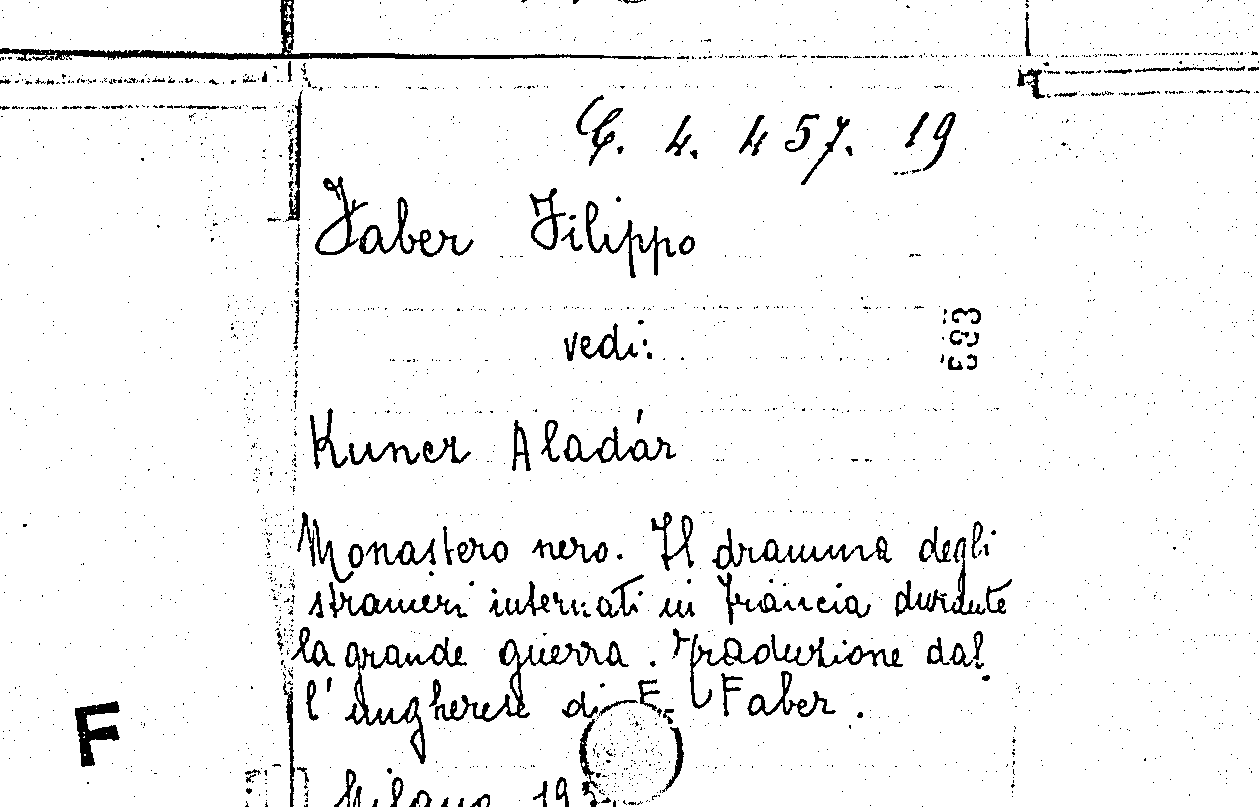 C. 4. 457. 19
Faber Filippo
vedi:
693
Kuncz Aladár
Monastero nero. Il dramma degli
stranieri internati in Francia durante
la grande guerra. Traduzione dal
l'ungherese di F. Faber.
F
Milano 193